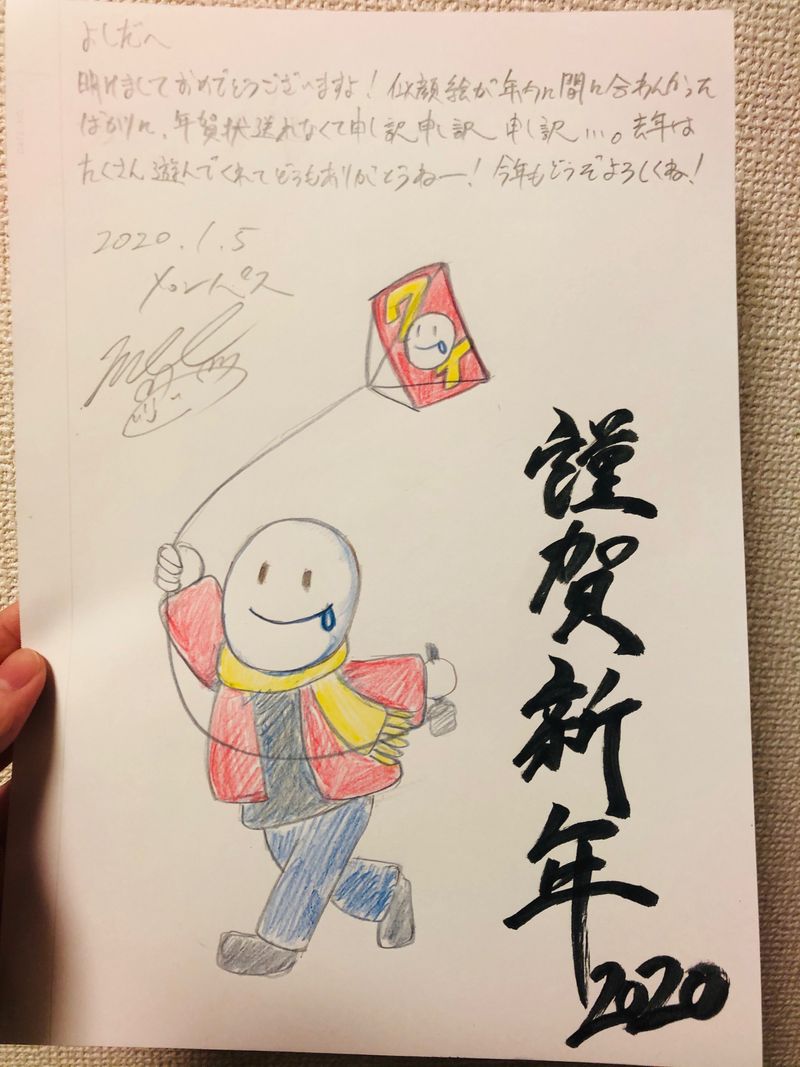 よしだへ
明けましておめでとうございますよ！似顔絵が年内に間に合わんかった
ばかりに、年賀状送れなくて申し訳申し訳 申し訳…。去年は
たくさん遊んでくれてどうもありがとうねー！今年もどうぞよろしくね！
2020.1.5
メロンペス
ワ
イ
謹賀新年
2020